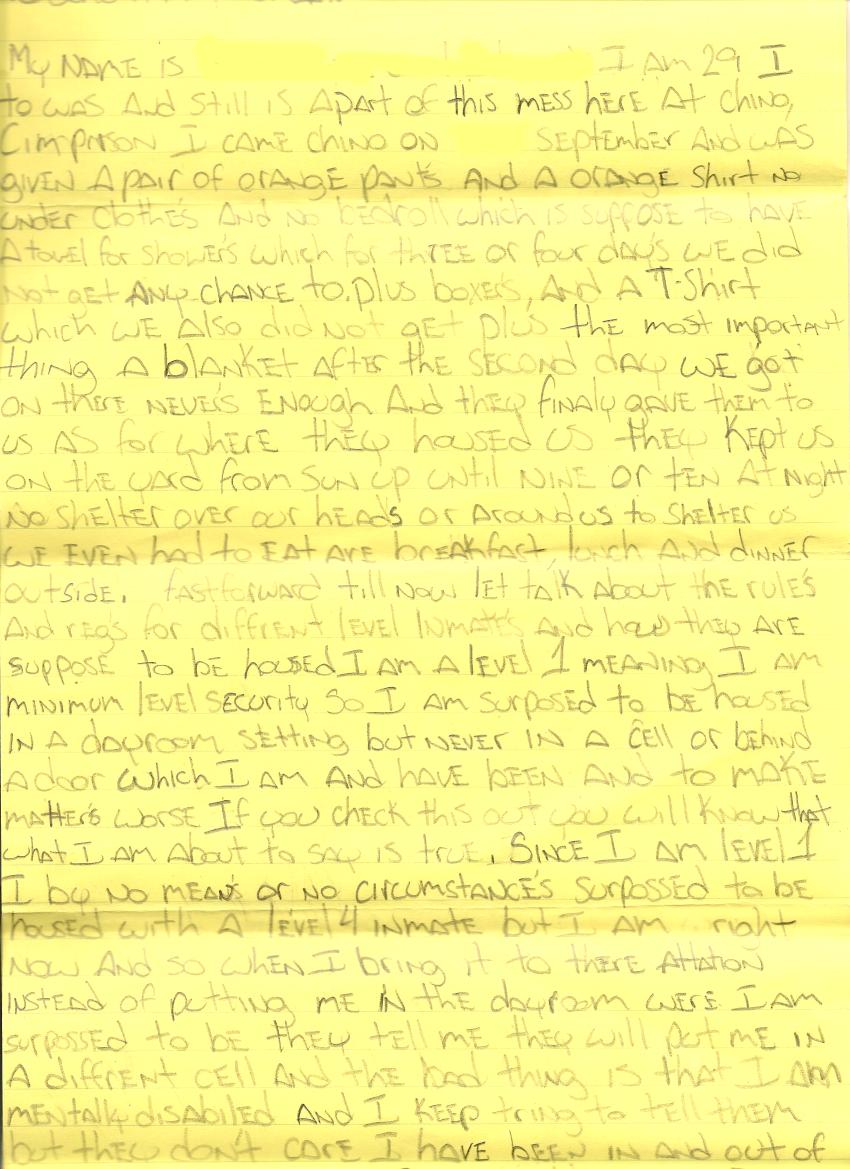 My NAME is I Am 29, I
to was And still is Apart of this mess here At chino,
Cim prison I came chino on September And was
given A pair of orange pants And A orange shirt no
under clothe's And no bedroll which is suppose to have
A towel for shower's which for three or four day's we did
not get Any chance to. plus boxer's, And A T-Shirt
which we Also did not get plus the most important
thing A blanket After the second day we got
on there never's enough And they finaly gave them to
us As for where they housed us they kept us
on the yard from sun up until nine or ten At night
no shelter over our head's or Around us to shelter us
we even had to eat are breakfast, lunch And dinner
outside. fastforward till now let talk About the rule's
And reg's for different level Inmate's And how they Are
suppose to be housed I am A level 1 meaning I am
minimum level security so I am surposed to be housed
in A dayroom setting but never in A cell or behind
A door which I am And have been And to make
matter's worse If you check this out you will know that
what I am About to say is true. Since I am level 1
I by no mean's or no circumstance's surpossed to be
housed with A level 4 inmate but I am right
now And so when I bring it to there Attation
instead of putting me in the dayroom were I am
surpossed to be they tell me they will put me in
A diffrent cell And the bad thing is that I Am
mentaly disabiled And I keep tring to tell them
but they don't care I have been in and out of